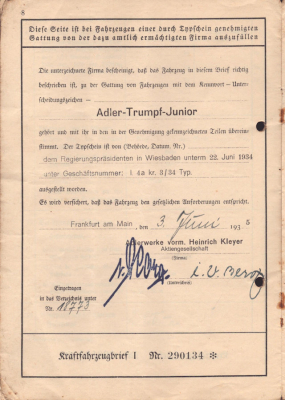 8
Diese Seite ist bei Fahrzeugen einer durch Typschein genehmigten
Gattung von der dazu amtlich ermächtigten Firma auszufüllen
Die unterzeichnete Firma bescheinigt, daß das Fahrzeug in diesem Brief richtig
beschrieben ist, zu der Gattung von Fahrzeugen mit dem Kennwort – Unter-
scheidungszeichen –
Adler-Trumpf-Junior
gehört und mit ihr in den in der Genehmigung gekennzeichneten Teilen überein-
stimmt. Der Typschein ist von (Behörde, Datum, Nr.)
dem Regierungspräsidenten in Wiesbaden unterm 22. Juni 1934
unter Geschäftsnummer: I 8a kr. 3/34 Typ.
ausgestellt worden.
Es wird versichert, daß das Fahrzeug den gesetzlichen Anforderungen entspricht.
Frankfurt am Main, den 3. Juni 1935
Adlerwerke vorm. Heinrich Kleyer
Aktiengesellschaft
(Firma)
i. V.
(Unterschrift)
Eingetragen
in das Verzeichnis unter
Nr. 18773
Kraftfahrzeugbrief I Nr. 290134 ✻